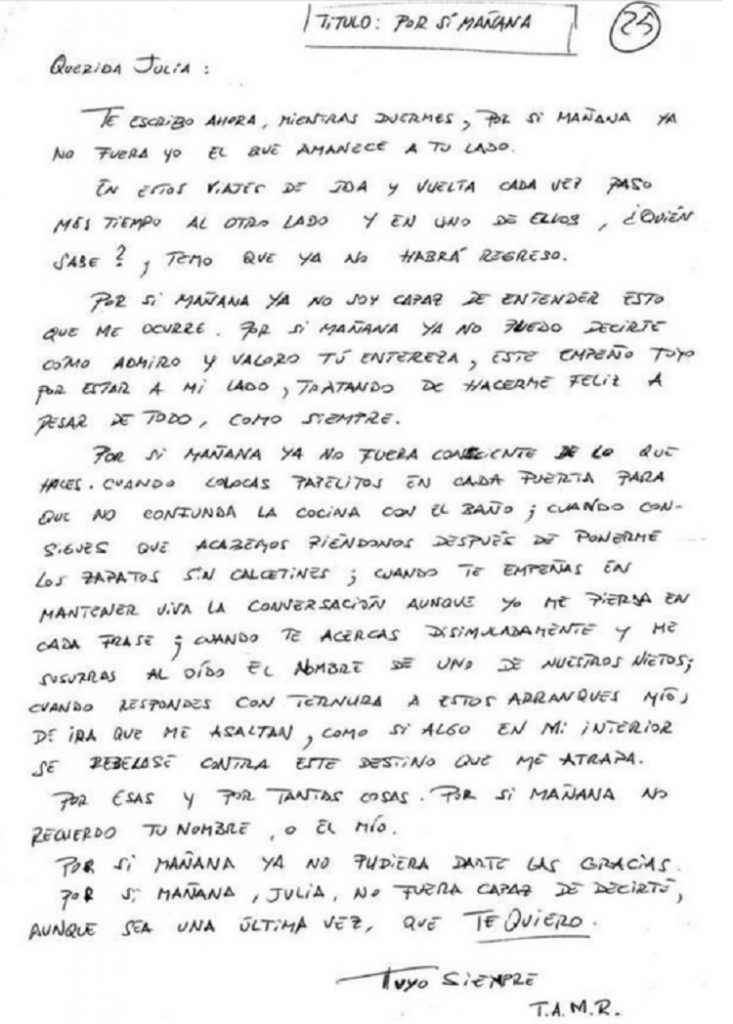 TÍTULO: POR SI MAÑANA
25
QUERIDA JULIA:
TE ESCRIBO AHORA, MIENTRAS DUERMES, POR SI MAÑANA YA
NO FUERA YO EL QUE AMANECE A TU LADO.
EN ESTOS VIAJES DE IDA Y VUELTA CADA VEZ PASO
MÁS TIEMPO AL OTRO LADO Y EN UNO DE ELLOS, ¿QUIÉN
SABE?, TEMO QUE YA NO HABRÁ REGRESO.
POR SI MAÑANA YA NO SOY CAPAZ DE ENTENDER ESTO
QUE ME OCURRE. POR SI MAÑANA YA NO PUEDO DECIRTE
CÓMO ADMIRO Y VALORO TÚ ENTEREZA, ESTE EMPEÑO TUYO
POR ESTAR A MI LADO, TRATANDO DE HACERME FELIZ A
PESAR DE TODO, COMO SIEMPRE.
POR SI MAÑANA YA NO FUERA CONSCIENTE DE LO QUE
HACES. CUANDO COLOCAS PAPELITOS EN CADA PUERTA PARA
QUE NO CONFUNDA LA COCINA CON EL BAÑO; CUANDO CON-
SIGUES QUE ACABEMOS RIÉNDONOS DESPUÉS DE PONERME
LOS ZAPATOS SIN CALCETINES; CUANDO TE EMPEÑAS EN
MANTENER VIVA LA CONVERSACIÓN AUNQUE YO ME PIERDA EN
CADA FRASE; CUANDO TE ACERCAS DISIMULADAMENTE Y ME
SUSURRAS AL OÍDO EL NOMBRE DE UNO DE NUESTROS NIETOS;
CUANDO RESPONDES CON TERNURA A ESTOS ARRANQUES MÍOS
DE IRA QUE ME ASALTAN, COMO SI ALGO EN MI INTERIOR
SE REBELASE CONTRA ESTE DESTINO QUE ME ATRAPA.
POR ESAS Y POR TANTAS COSAS. POR SI MAÑANA NO
RECUERDO TU NOMBRE, O EL MÍO.
POR SI MAÑANA YA NO PUDIERA DARTE LAS GRACIAS.
POR SI MAÑANA, JULIA, NO FUERA CAPAZ DE DECIRTE,
AUNQUE SEA UNA ÚLTIMA VEZ, QUE TE QUIERO.
TUYO SIEMPRE
T.A.M.R.